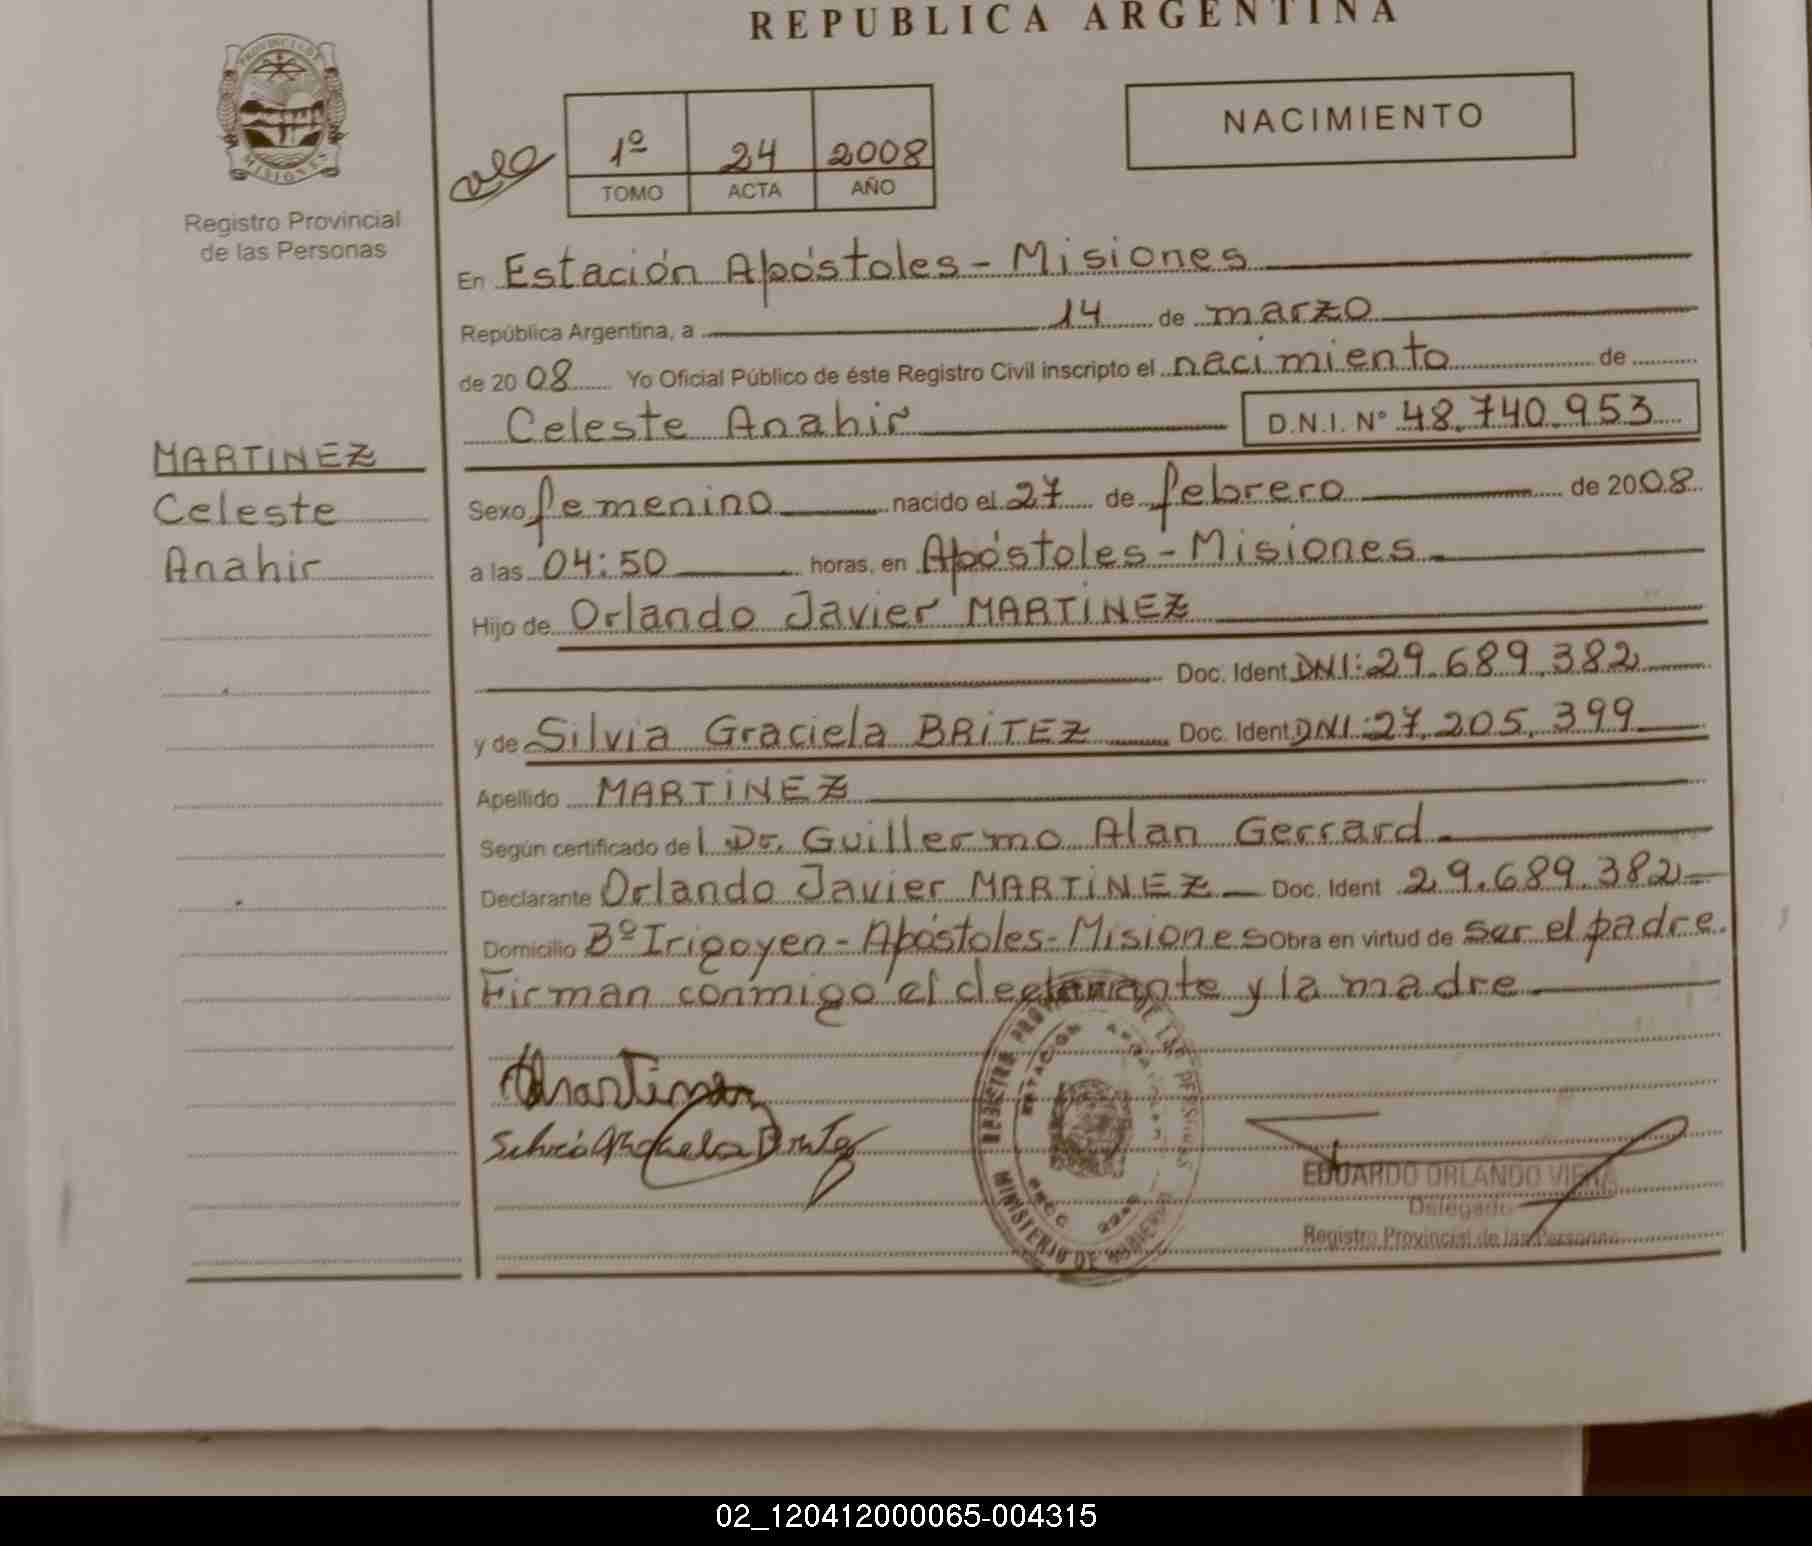 REPUBLICA ARGENTINA
PROVINCIA DE
MISIONES
Registro Provincial
de las Personas
1º 24 2008
TOMO ACTA AÑO
NACIMIENTO
En Estación Apóstoles - Misiones
República Argentina, a 14 de marzo
de 20 08 Yo Oficial Público de éste Registro Civil inscripto el nacimiento de
Celeste Anahir D.N.I. Nº 48.740.953
MARTINEZ
Celeste
Anahir
Sexo femenino nacido el 27 de febrero de 2008
a las 04:50 horas, en Apóstoles - Misiones
Hijo de Orlando Javier MARTINEZ
Doc. Ident DNI: 29.689.382
y de Silvia Graciela BRITEZ Doc. Ident DNI: 27.205.399
Apellido MARTINEZ
Según certificado del Dr. Guillermo Alan Gerrard
Declarante Orlando Javier MARTINEZ Doc. Ident 29.689.382
Domicilio Bº Irigoyen - Apóstoles - Misiones Obra en virtud de ser el padre.
Firman conmigo el declarante y la madre
REGISTRO PROVINCIAL DE LAS PERSONAS
ESTACION APOSTOLES
MINISTERIO DE GOBIERNO
EDUARDO ORLANDO VIERA
Delegado
Registro Provincial de las Personas
02_120412000065-004315